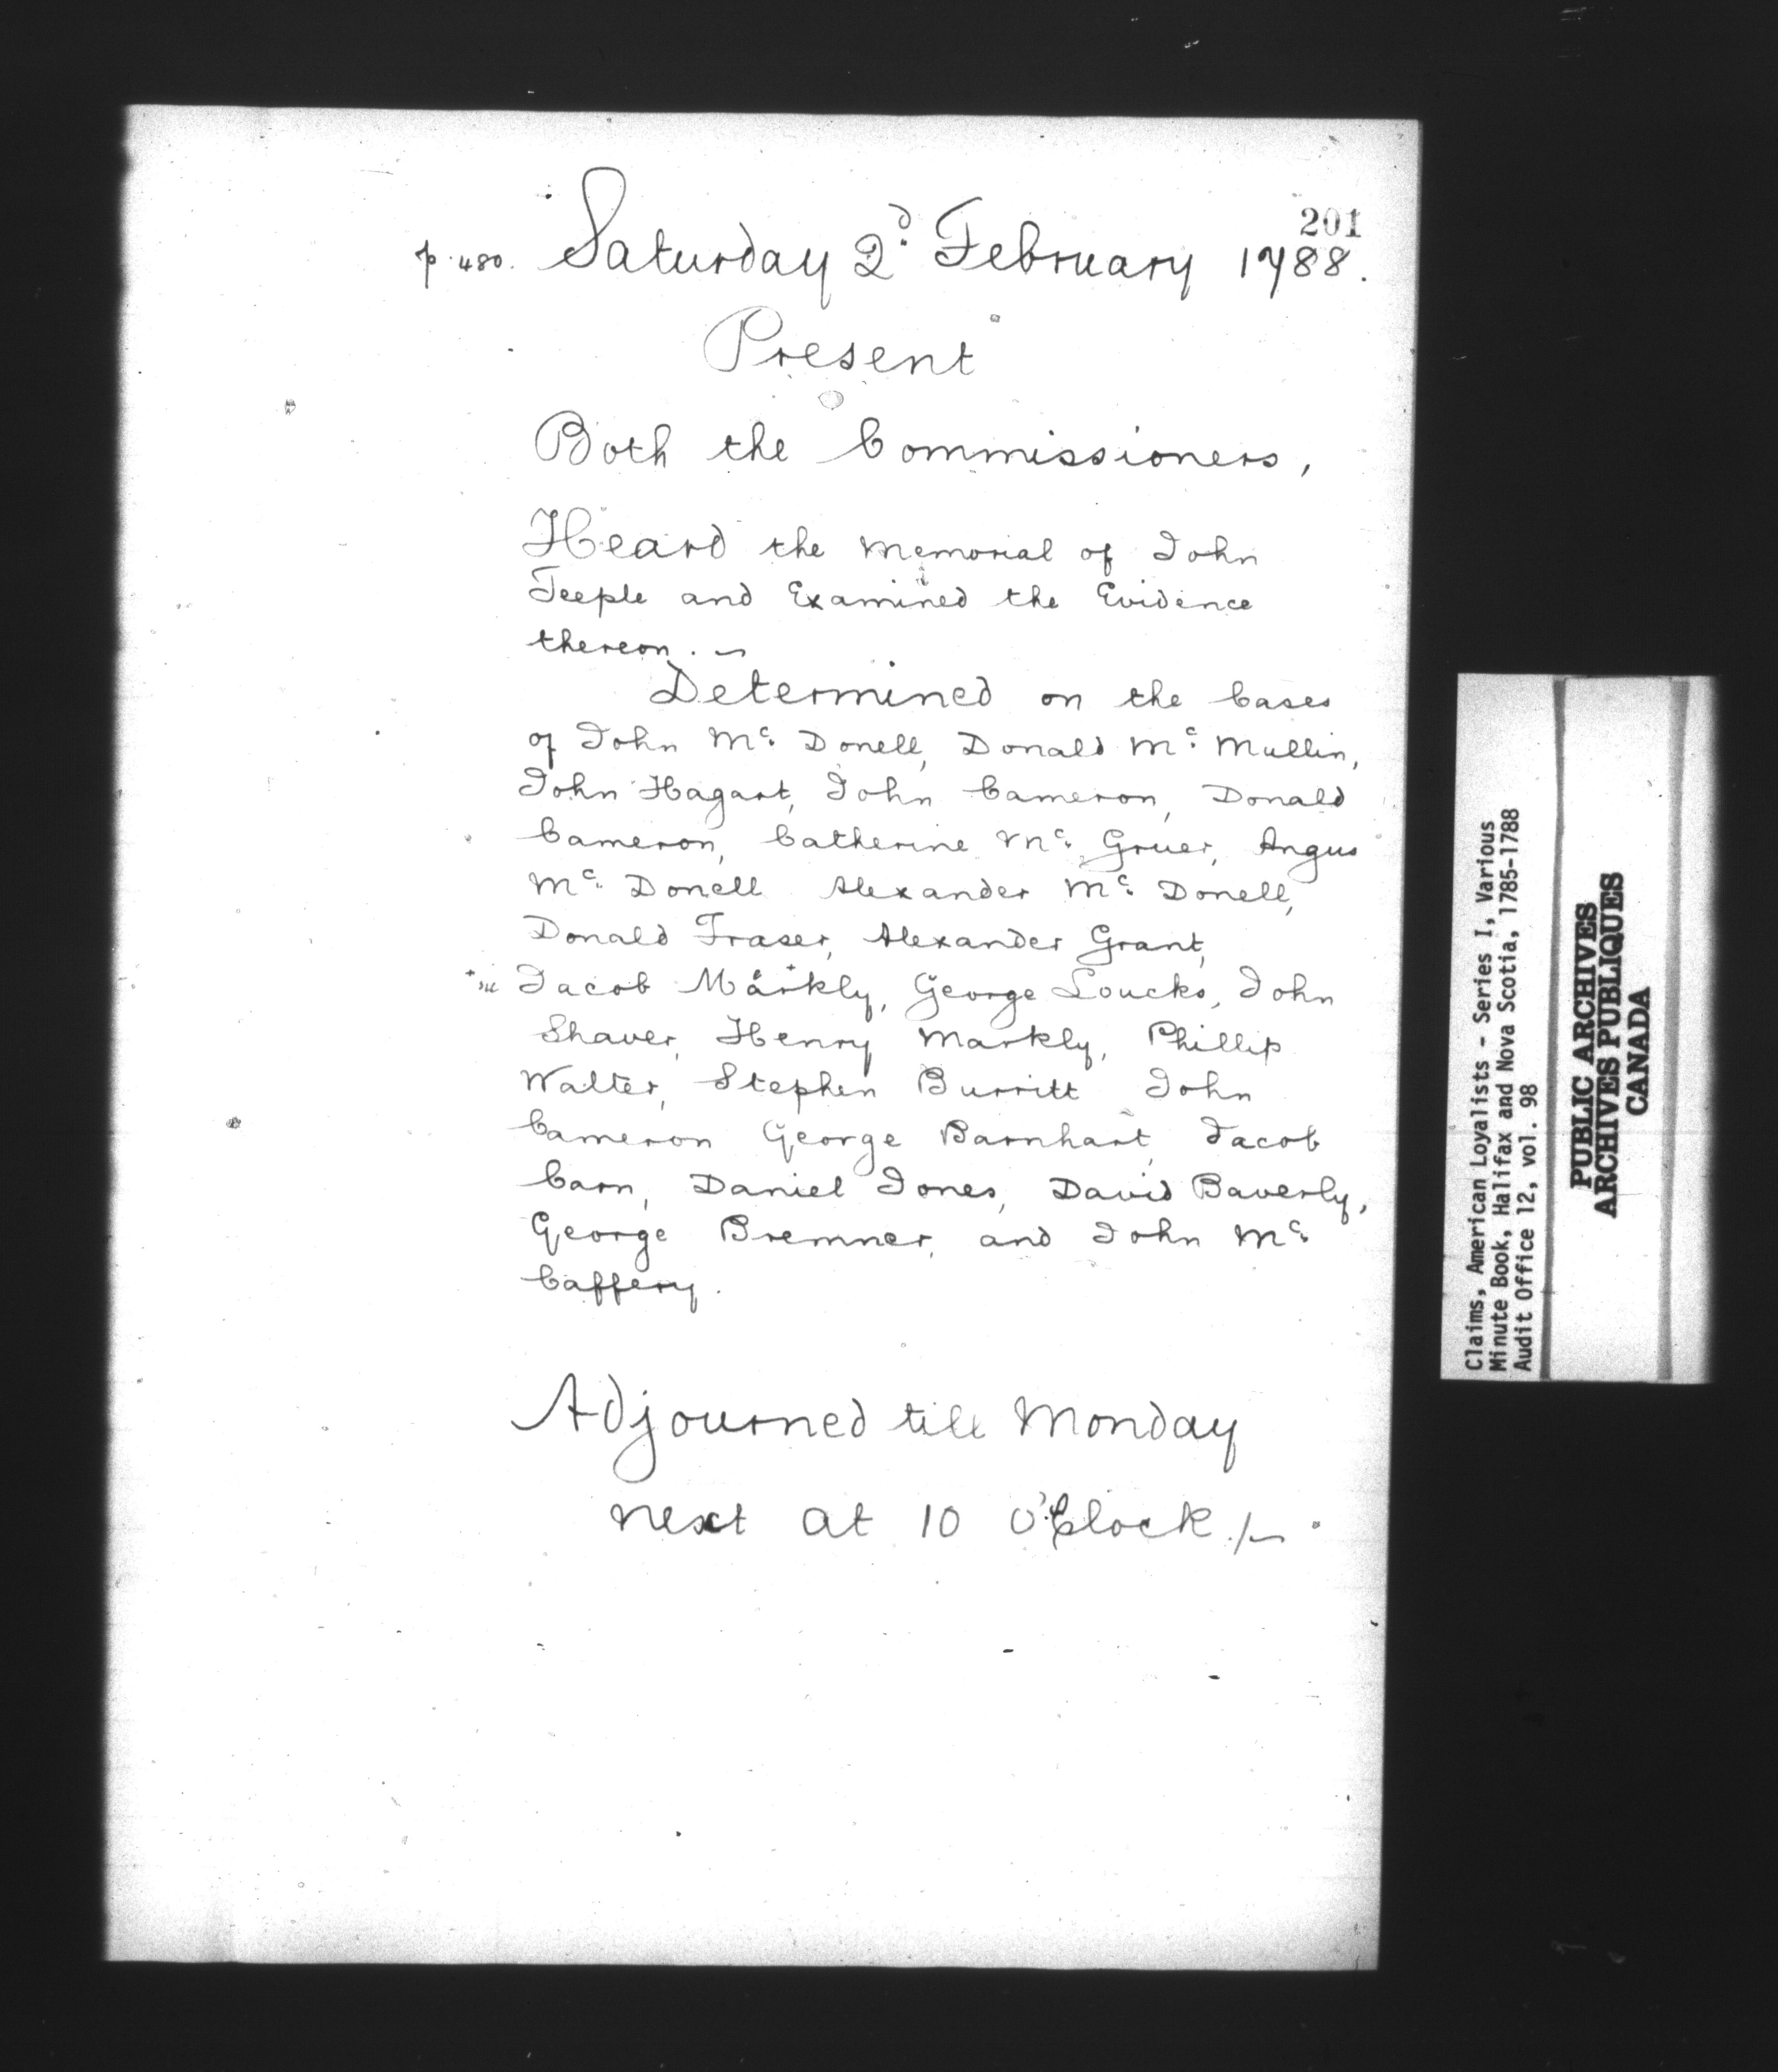 201
p. 480. Saturday 2d. February 1788.
Present
Both the Commissioners,
Heard the Memorial of John
Teeple and Examined the Evidence
thereon. ~
Determined on the Cases
of John Mc. Donell, Donald Mc. Mullin,
John Hagart, John Cameron, Donald
Cameron, Catherine Mc. Gruer, Angus
Mc. Donell Alexander Mc. Donell,
Donald Fraser, Alexander Grant,
Jacob Markly, George Loucks, John
Shaver, Henry Markly, Phillip
Walter, Stephen Burritt John
Cameron George Barnhart, Jacob
Carn, Daniel Jones, David Baverly,
George Bremner, and John Mc.
Caffery.
Adjourned till Monday
next at 10 O'Clock./~
Claims, American Loyalists - Series I, Various
Minute Book, Halifax and Nova Scotia, 1785-1788
Audit Office 12, vol. 98
PUBLIC ARCHIVES
ARCHIVES PUBLIQUES
CANADA